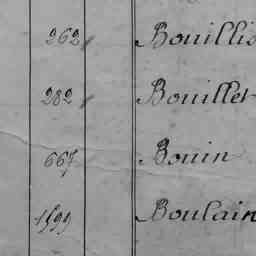 262 Bouillis
282 Bouillet
667 Bouin
1599 Boulain